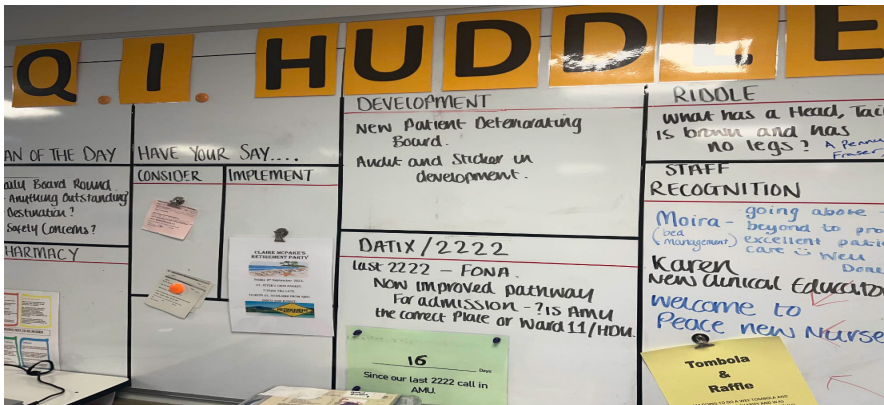 Q.I. HUDDLE
AN OF THE DAY
aily Board Round
- Anything Outstanding
- Destination?
- Safety Concerns?
HARMACY
HAVE YOUR SAY....
CONSIDER
IMPLEMENT
CLAIRE MCPAKE'S
RETIREMENT PARTY
DEVELOPMENT
New Patient Deteriorating
Board.
Audit and Sticker in
development.
DATIX/2222
last 2222 - FONA.
Now improved pathway
For admission - ? is AMU
the correct Place or Ward 11/HDU.
16 Days
Since our last 2222 call in
AMU.
RIDDLE
What has a Head, Tail
is brown and has
no legs? A Penny
Fraser
STAFF
RECOGNITION
Moira - going above -
(bed management) beyond to pro
excellent patie
care Well
Done
Karen
New Clinical Educator
Welcome to
Peace new Nurse
Tombola
&
Raffle